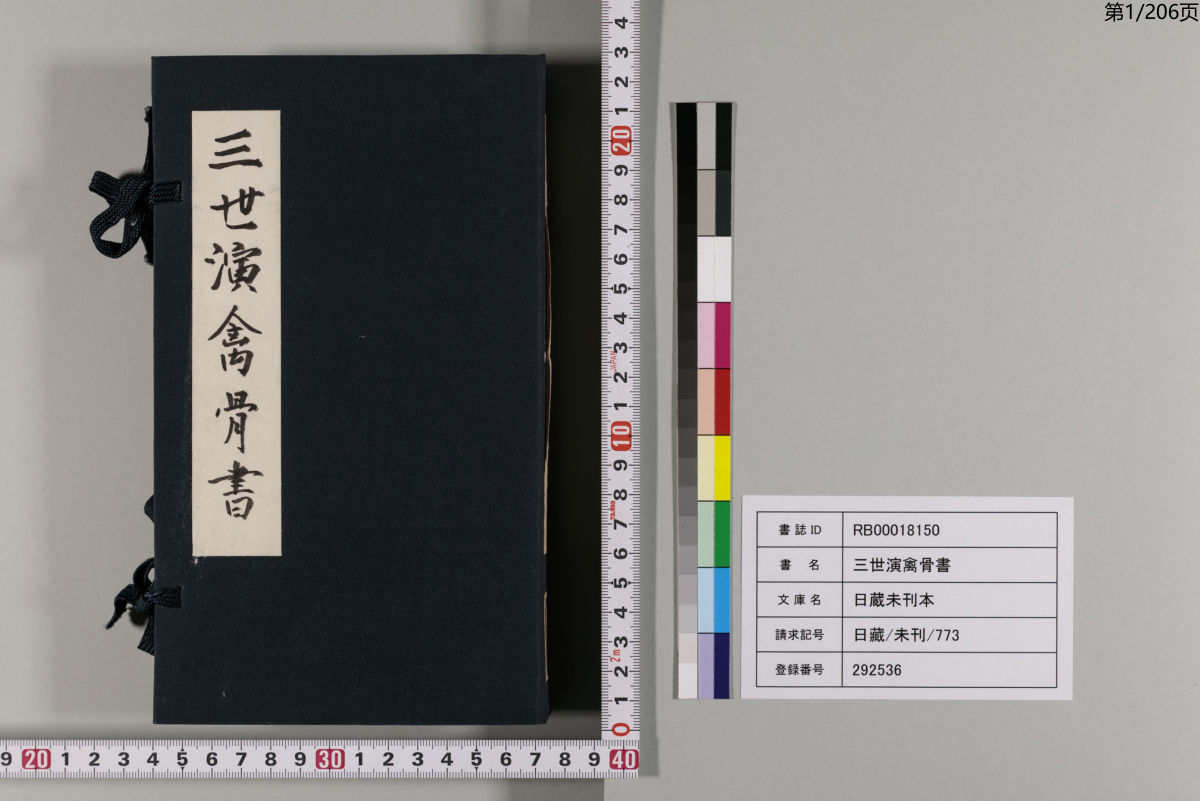 第1/206页
三世演禽骨書
書誌ID RB00018150
書名 三世演禽骨書
文庫名 日蔵未刊本
請求記号 日藏/未刊/773
登録番号 292536
4
3
2
1
20
9
8
7
6
5
4
3
JAPAN
2
1
10
9
8
7
6
5
4
3
2m
2
1
0
9 20 1 2 3 4 5 6 7 8 9 30 1 2 3 4 5 6 7 8 9 40